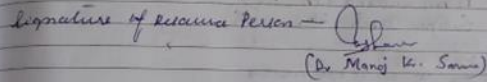 Signature of Resource Person —
(Dr Manoj K. Sarma)